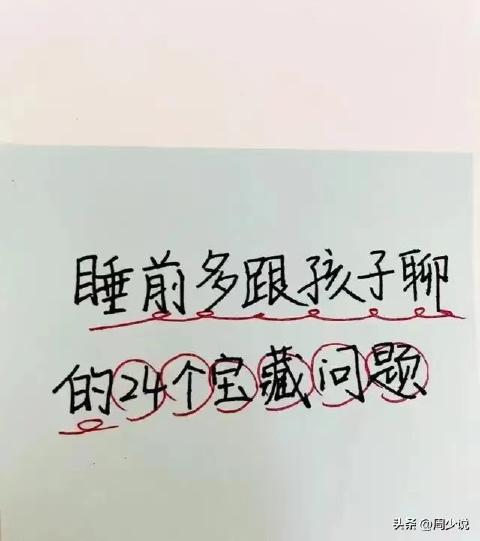 睡前多跟孩子聊
的24个宝藏问题
头条 @周少说